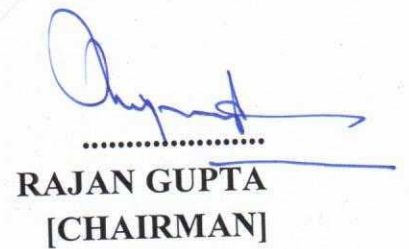 ....................
RAJAN GUPTA
[CHAIRMAN]